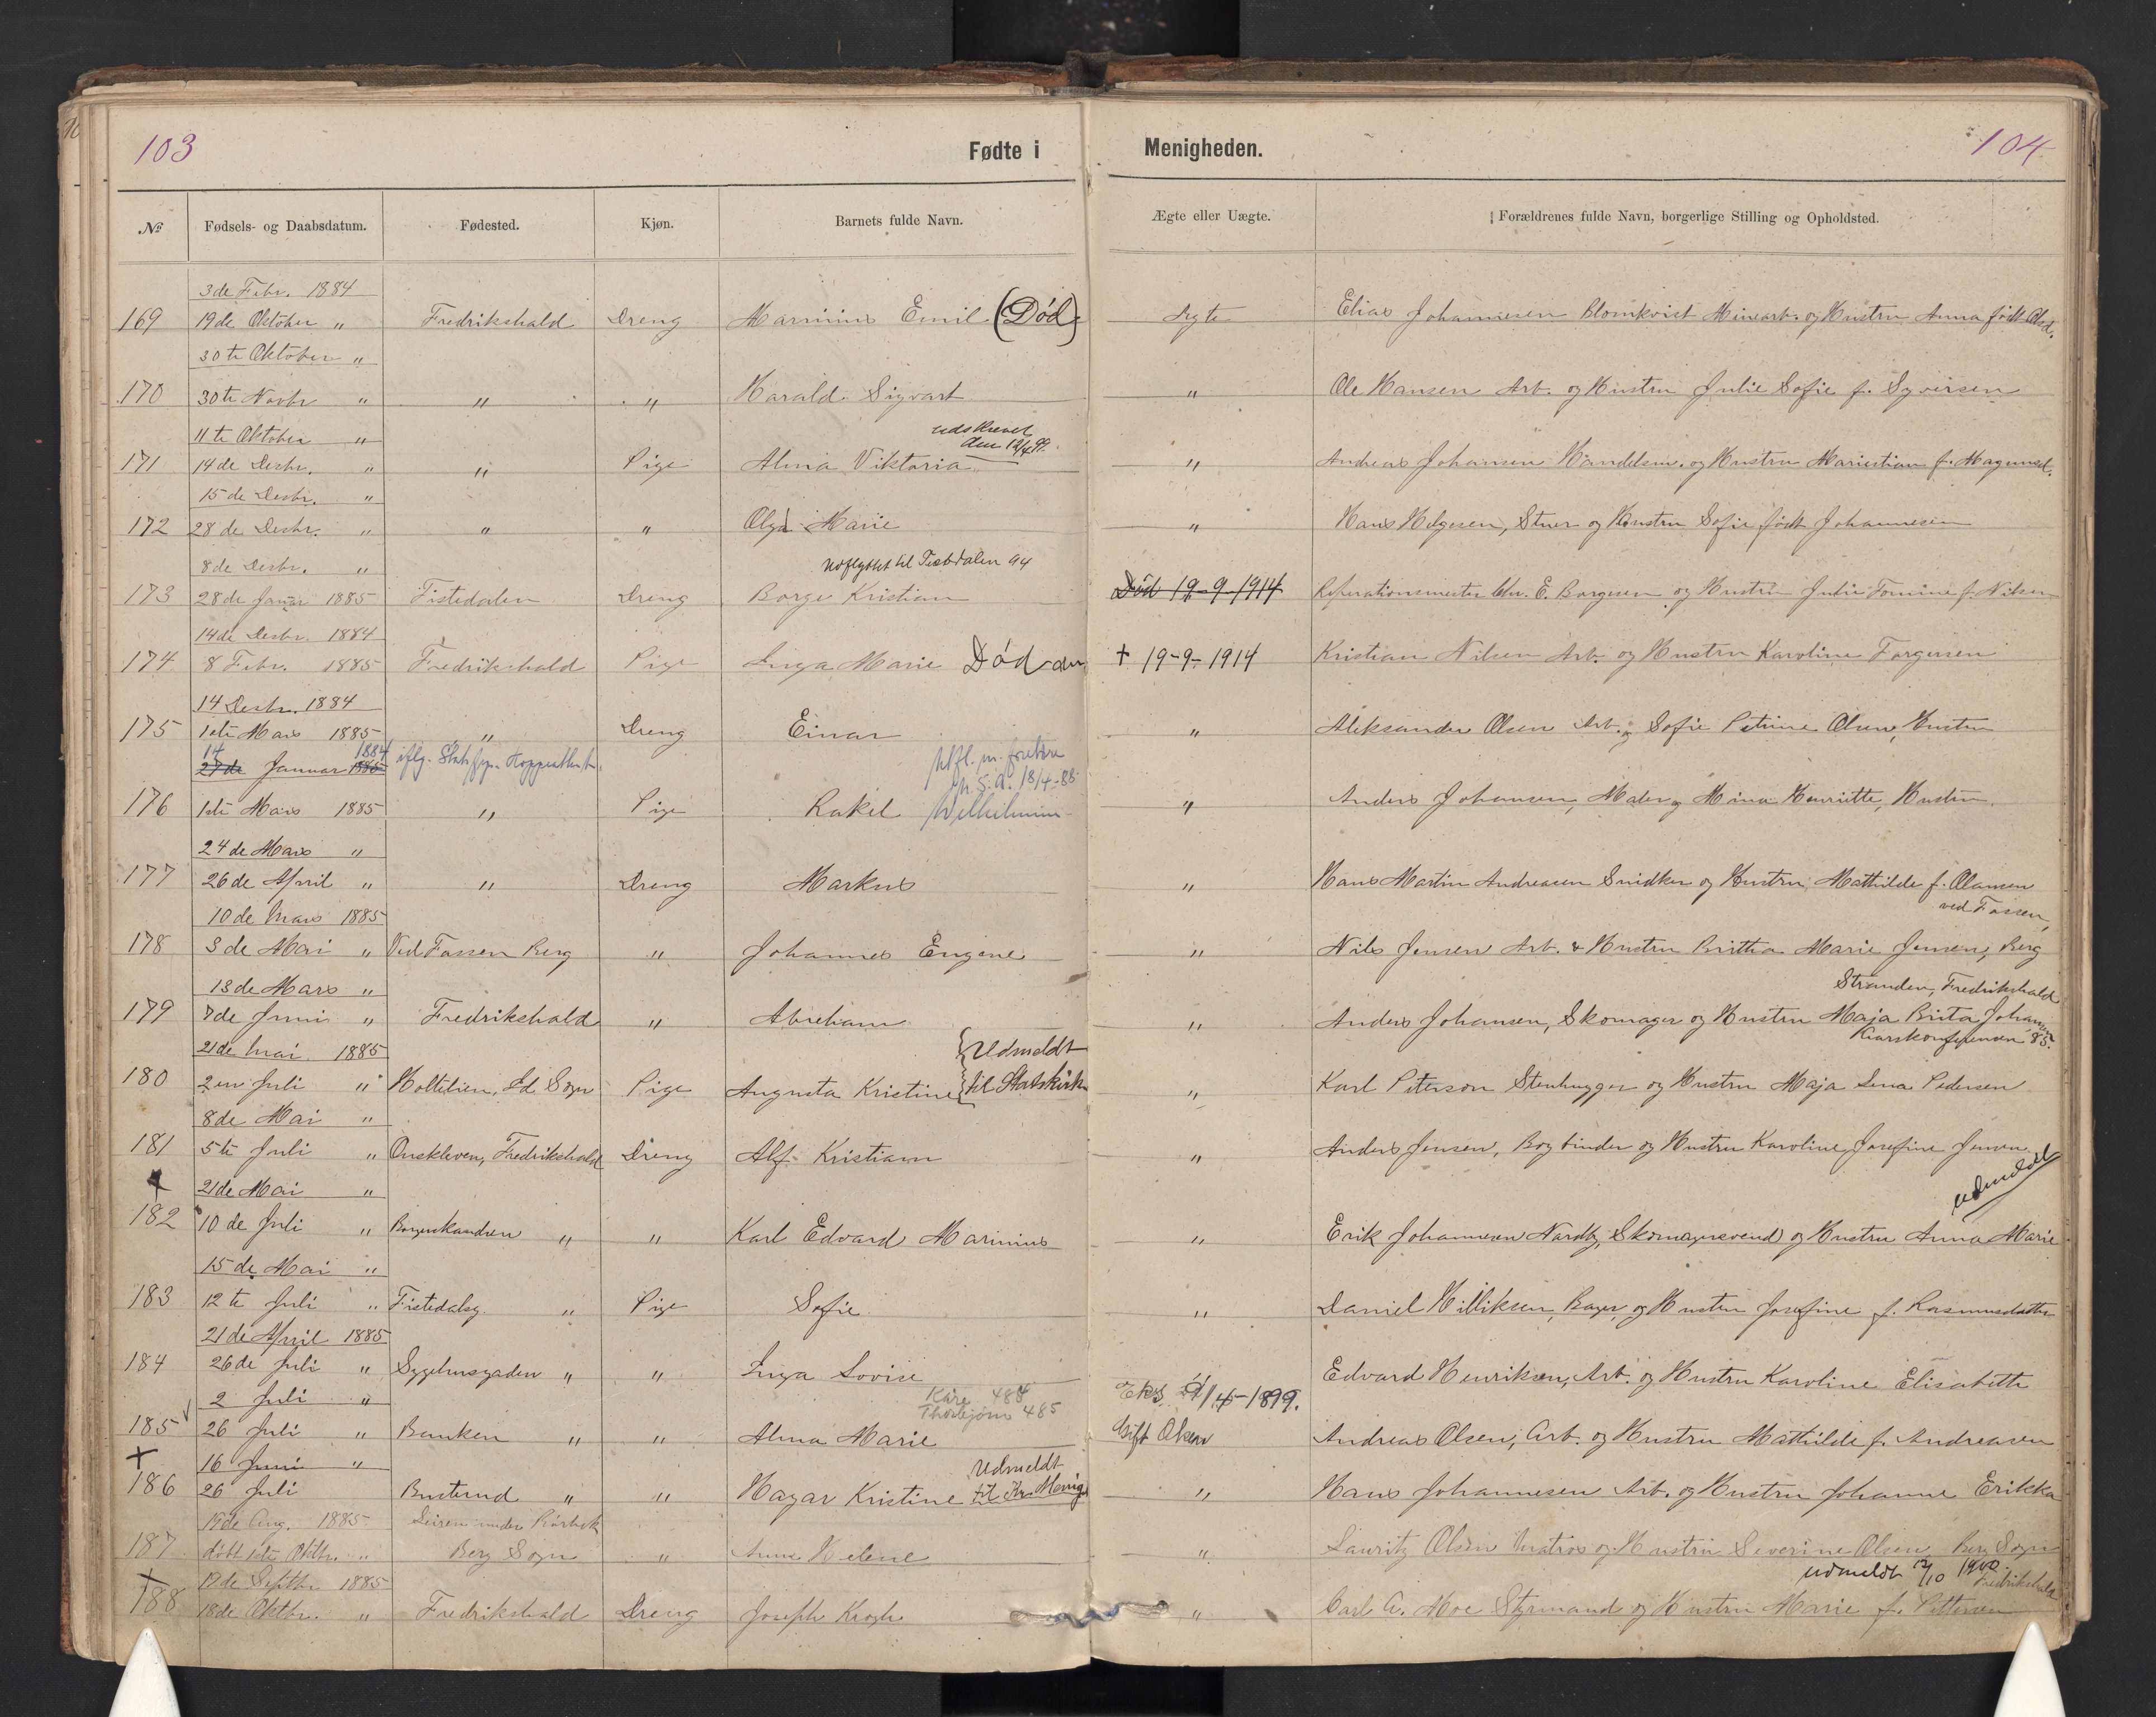 103
Fødte i
Menigheden.
104
№
Fødsels- og Daabsdatum.
Fødested.
Kjøn.
Barnets fulde Navn.
Ægte eller Uægte.
Forældrenes fulde Navn, borgerlige Stilling og Opholdsted.
3de Febr. 1884
169 19de Oktober " Fredrikshald Dreng Marinius Emil (Død) Ægte Elias Johannesen Blomkvist Minearb. og Hustru Anna født Olsd.
30te Oktober "
170 30te Novbr " " " Harald Sigvart " Ole Hansen Arb. og Hustru Julie Sofie f. Syversen
11te Oktober " udskrevet
den 12/4 99.
171 14de Decbr. " " Pige Alma Viktoria " Andreas Johansen Handelsm. og Hustru f. Magnusd.
15de Decbr. "
172 28de Decbr. " " " Olga Marie " Hans Helgesen, Stuer og Hustru Sofie født Johannesen
8de Decbr. " Udflyttet til Tistedalen 94
173 28de Januar 1885 Tistedalen Dreng Borge Kristian Død 19-9-1914 Chr. E. Borgesen og Hustru Julie Tomine f. Nilsen
14de Decbr. 1884
174 8 Febr. 1885 Fredrikshald Pige Inga Marie Død den † 19-9-1914 Kristian Nilsen Arb. og Hustru Karoline Torgersen
14 Decbr. 1884
175 1ste Mars 1885 " Dreng Einar " Aleksander Olsen Arb. og Sofie Petrine Olsen, Hustru
14 1884
27de Januar 1885 iflg. Utfl. m. foreldre
18/4-88
176 1ste Mars 1885 " Pige Rakel Wilhelmine " Anders Johansen, Maler og Mina Henriette, Hustru.
24de Mars "
177 26de April " " Dreng Markus " Hans Martin Andreasen Snidker og Hustru Mathilde f. Olausen
10de Mars 1885 ved Fossen,
178 3de Mai " Ved Fossen Berg " Johannes Eugene " Nils Jensen Arb. & Hustru Brittha Marie Jensen, Berg
13de Mars " Stranden, Fredrikshald
179 7de Juni " Fredrikshald " Abraham " Anders Johansen, Skomager og Hustru Maja Brita Johansen
21de Mai 1885 Udmeldt
180 2en Juli " Holtelien, Id Sogn Pige Augusta Kristine til Statskirken " Karl Peterson Stenhugger og Hustru Maja Lena Pedersen
8de Mai "
181 5te Juli " Ouskleven, Fredrikshald Dreng Alf Kristian " Anders Jensen, Bogbinder og Hustru Karoline Josefine Jensen
21de Mai " udmeldt
182 10de Juli " " " Karl Edvard Marinius " Erik Johannesen Nordby, Skomagersvend og Hustru Anna Marie
15de Mai "
183 12te Juli " Tistedalsg. " Pige Sofie " Daniel Hilliksen, Bager, og Hustru Josefine f. Rasmusdatter
21de April 1885
184 26de Juli " Sygehusgaden " " Inga Lovise Edvard Henriksen, Arb. og Hustru Karoline Elisabeth
2 Juli " Kåre 484
Thorbjørn 485 1899.
185 26 Juli " Banken " " Alma Marie Gift Olsen Andreas Olsen, Arb. og Hustru Mathilde f. Andreasen
16 Juni " Udmeldt
186 26 Juli Busterud " " Hagar Kristine til Kr. Menigh " Hans Johannesen Arb. og Hustru Johanne Erikka
19de Aug. 1885 Leiren under
187 døbt 1ste Oktbr. " Berg Sogn " Anne Helene " Lauritz Olsen Matros og Hustru Severine Olsen Berg Sogn
19de Septbr 1885 udmeldt 1900. Fredrikshald
188 18de Oktbr. " Fredrikshald Dreng Joseph Krogh " Carl A. Moe Styrmand og Hustru Marie f. Pettersen